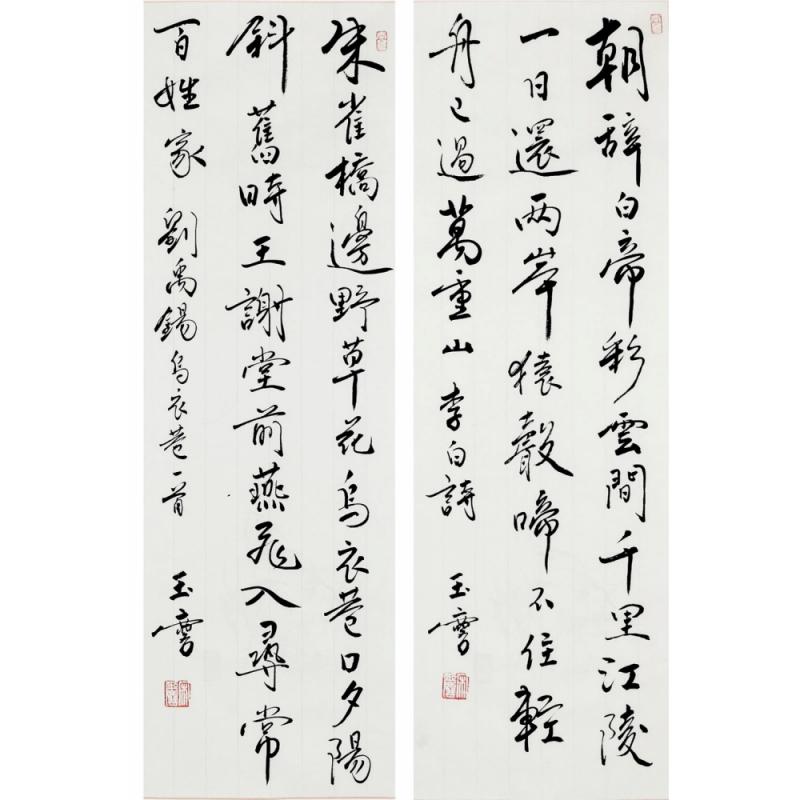 朝辭白帝彩雲間千里江陵
一日還两岸猿聲啼不住輕
舟已過萬重山 李白詩 玉
朱雀橋邊野草花烏衣巷口夕陽
斜舊時王謝堂前燕飛入尋常
百姓家 劉禹錫烏衣巷一首 玉